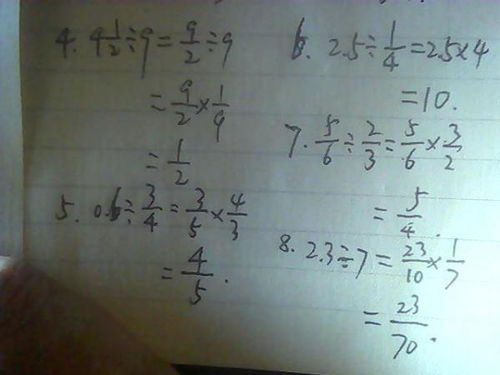 4. 4 1/2 ÷ 9 = 9/2 ÷ 9
= 9/2 × 1/9
= 1/2
5. 0.6 ÷ 3/4 = 3/5 × 4/3
= 4/5.
6. 2.5 ÷ 1/4 = 2.5 × 4
= 10.
7. 5/6 ÷ 2/3 = 5/6 × 3/2
= 5/4.
8. 2.3 ÷ 7 = 23/10 × 1/7
= 23/70.